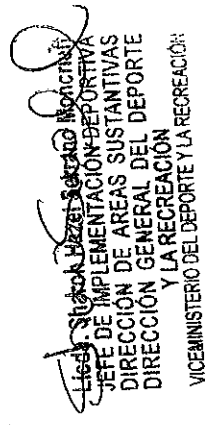 Licda. Sharon Hazel Serrano Moncrief
JEFE DE IMPLEMENTACIÓN DEPORTIVA
DIRECCIÓN DE AREAS SUSTANTIVAS
DIRECCIÓN GENERAL DEL DEPORTE
Y LA RECREACIÓN
VICEMINISTERIO DEL DEPORTE Y LA RECREACIÓN